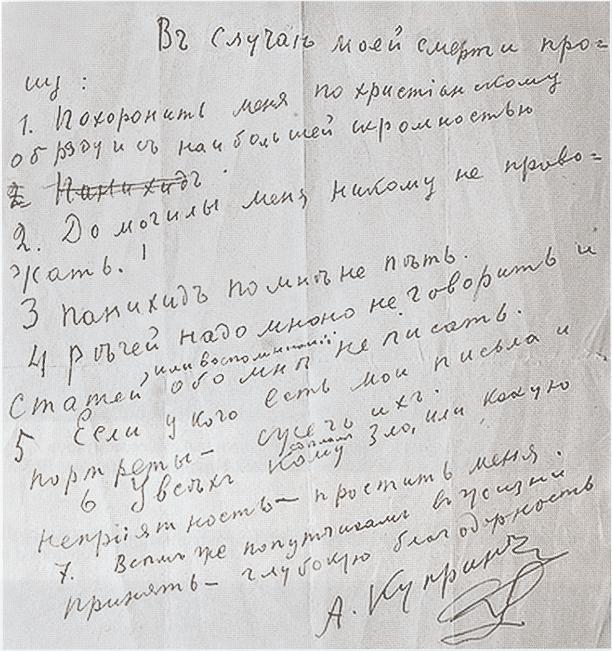 Въ случаѣ моей смерти про=
шу:
1. Похоронить меня по христіанскому
обряду и съ наибольшей скромностью
2 Панихидъ.
2. До могилы меня никому не прово=
жать.
3 панихидъ по мнѣ не пѣть.
4 рѣчей надо мною не говорить и
статей, или воспоминаній обо мнѣ не писать.
5 Если у кого есть мои письма и
портреты – сжечь ихъ.
6 У всѣхъ кому сдѣлалъ зло, или какую
непріятность – простить меня.
7. Всѣмъ же попутчикамъ въ жизни
принять – глубокую благодарность
А. Купринъ